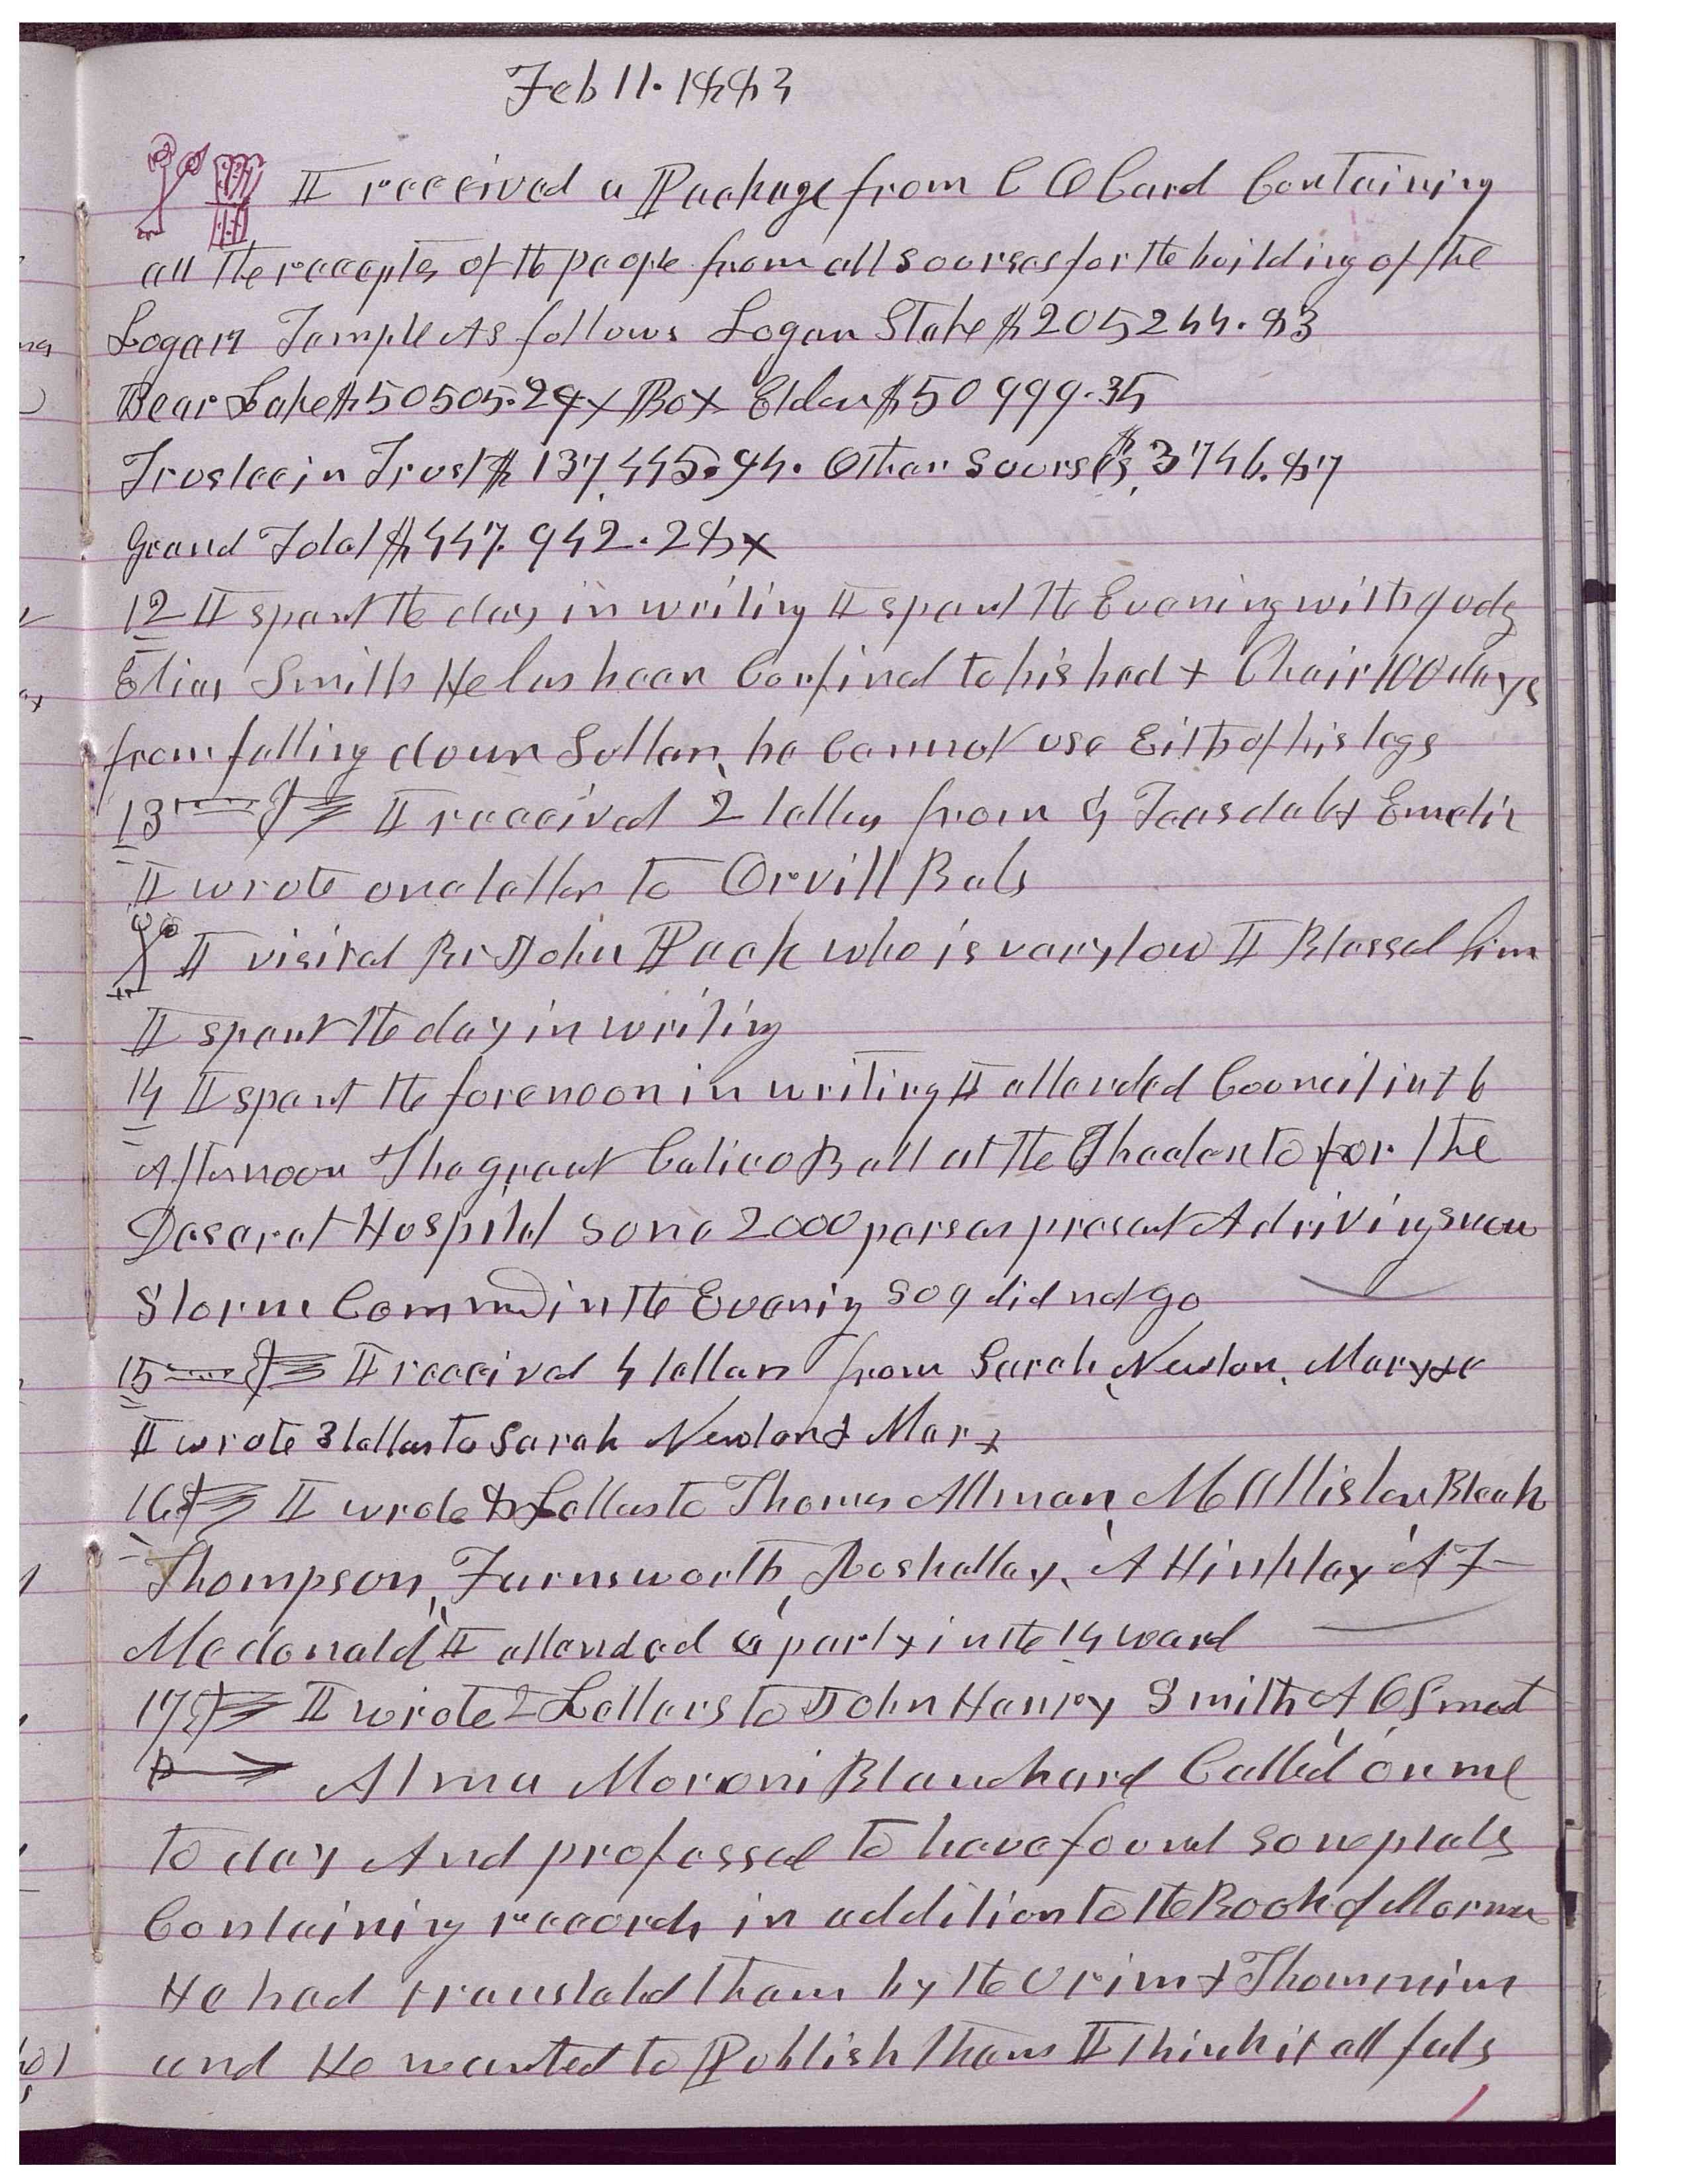 Feb 11. 1883
I received a Package from C O Card Containing
all the recepts of the people from all sourses for the building of the
Logan Temple As follows Logan Stake $205244.83
Bear Lake $50505.29x Box Elder $50999.35
Trustee in Trust $137,445.94. Other Sourses $3746.87
Grand Total $447.942.28x
12 I spent the day in writing I spent the Evening with Judg
Elias Smith He has been Confined to his bed & Chair 100 days
from falling down Seller, he Cannot use Eith of his legs
13 I received 2 letters from G Teasdale & Emelin
I wrote one letter to Orvill Bals
I visited Br John Pack who is very low I Blessed him
I spent the day in writing
14 I spent the forenoon in writing I attended Council in th
Afternoon The great Calico Ball at the Theater to for the
Deseret Hospital some 2000 person present A driving snow
Storm Commd in the Evening so I did not go
15 I received 4 letters from Sarah, Newton, Mary &c
I wrote 3 letters to Sarah Newton & Mary
16 I wrote 8 Letters to Thomas Allman, McAllister Bleak
Thompson, Farnsworth, Roskelley, A Hinkley A F
Mcdonald I attended a party in the 14 ward
17 I wrote 2 Letters to John Henry Smith A O Smoot
Alma Moroni Blanchard Called on me
to day And professed to have found some plats
Containing records in addition to the Book of Mormon
He had translated them by the Urim & Thommim
and He wanted to Publish them I think it all fals